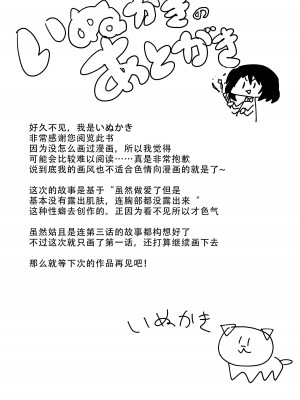 いぬかきの
あとがき
好久不见，我是いぬかき
非常感谢您阅览此书
因为没怎么画过漫画，所以我觉得
可能会比较难以阅读……真是非常抱歉
说到底我的画风也不适合色情向漫画的就是了~
这次的故事是基于“虽然做爱了但是
基本没有露出肌肤，连胸部都没露出来“
这种性癖去创作的。正因为看不见所以才色气
虽然姑且是连第三话的故事都构想好了
不过这次就只画了第一话，还打算继续画下去
那么就等下次的作品再见吧！
いぬかき